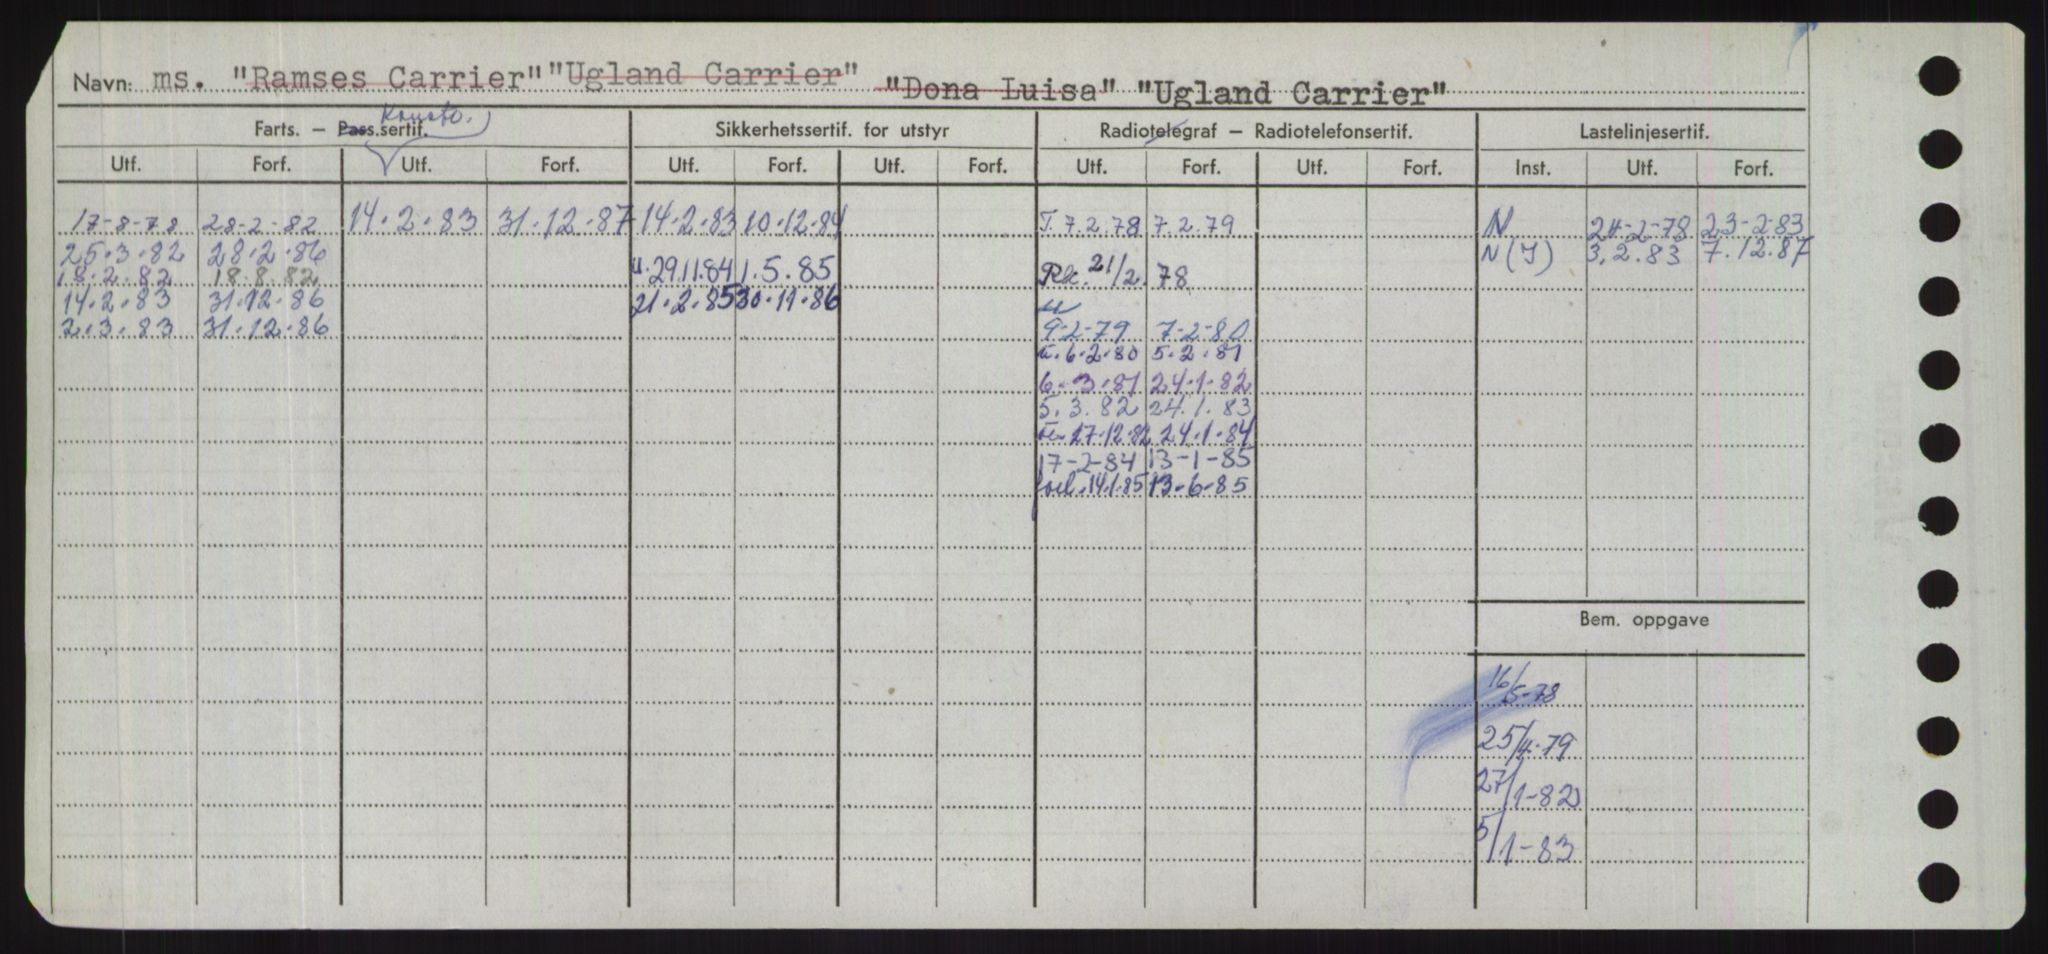 Navn: ms. "Ramses Carrier" "Ugland Carrier" "Dona Luisa" "Ugland Carrier"
Konstr.
Farts. – Pass.sertif. Sikkerhetssertif. for utstyr Radiotelegraf – Radiotelefonsertif. Lastelinjesertif.
Utf. Forf. Utf. Forf. Utf. Forf. Utf. Forf. Utf. Forf. Utf. Forf. Inst. Utf. Forf.
17-8-78 28-2-82 14.2.83 31.12.87 14.2.83 10.12.84 T. 7.2.78 7.2.79 N 24-2-78 23-2-83
25.3.82 28.2.86 N(I) 3.2.83 7.12.87
18.2.82 18.8.82 u. 29.11.84 1.5.85 Rk. 21/2.78
14.2.83 31.12.86 21.2.85 30.11.86
2.3.83 31.12.86 9-2-79 7-2-80
6.2.80 5.2.81
6.3.81 24.1.82
5.3.82 24.1.83
27.12.82 24.1.84
17-2-84 13-1-85
forl. 14.1.85 13.6.85
Bem. oppgave
16/5-78
25/4-79
27/1-82
5/1-83